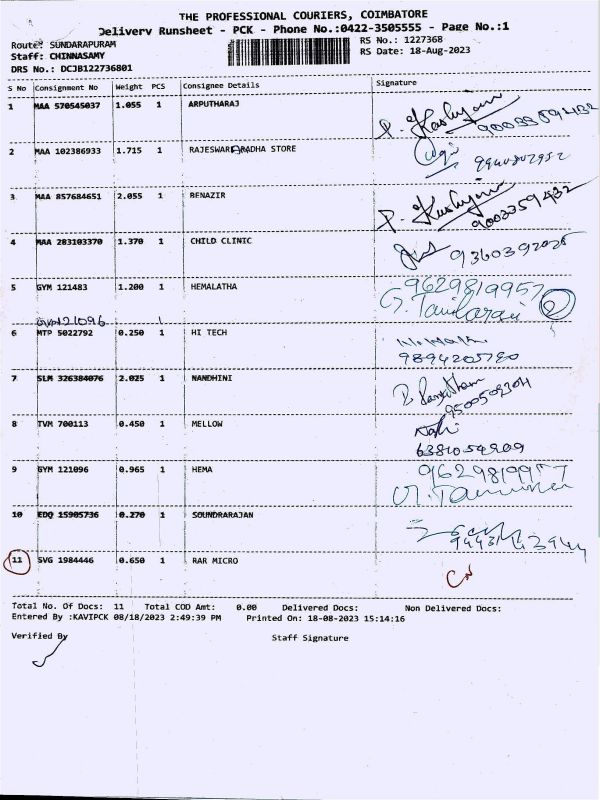 THE PROFESSIONAL COURIERS, COIMBATORE
Delivery Runsheet - PCK - Phone No.:0422-3505555 - Page No.:1
Route: SUNDARAPURAM
RS No.: 1227368
Staff: CHINNASAMY
RS Date: 18-Aug-2023
DRS No.: DCJB122736801
S No Consignment No Weight PCS Consignee Details Signature
1 MAA 570545037 1.055 1 ARPUTHARAJ
9003359432
2 MAA 102386933 1.715 1 RAJESWARI RADHA STORE
3 MAA 857684651 2.055 1 BENAZIR
9003359432
4 MAA 283103370 1.370 1 CHILD CLINIC
5 GYM 121483 1.200 1 HEMALATHA
9629819957
2
GYM121096 1
6 MTP 5022792 0.250 1 HI TECH
9894205780
7 SLM 326384076 2.025 1 NANDHINI
8 TVM 700113 0.450 1 MELLOW
9 GYM 121096 0.965 1 HEMA
9629819957
10 EDQ 15905736 0.270 1 SOUNDRARAJAN
11 SVG 1984446 0.650 1 RAR MICRO
Total No. Of Docs: 11 Total COD Amt: 0.00 Delivered Docs: Non Delivered Docs:
Entered By :KAVIPCK 08/18/2023 2:49:39 PM Printed On: 18-08-2023 15:14:16
Verified By Staff Signature